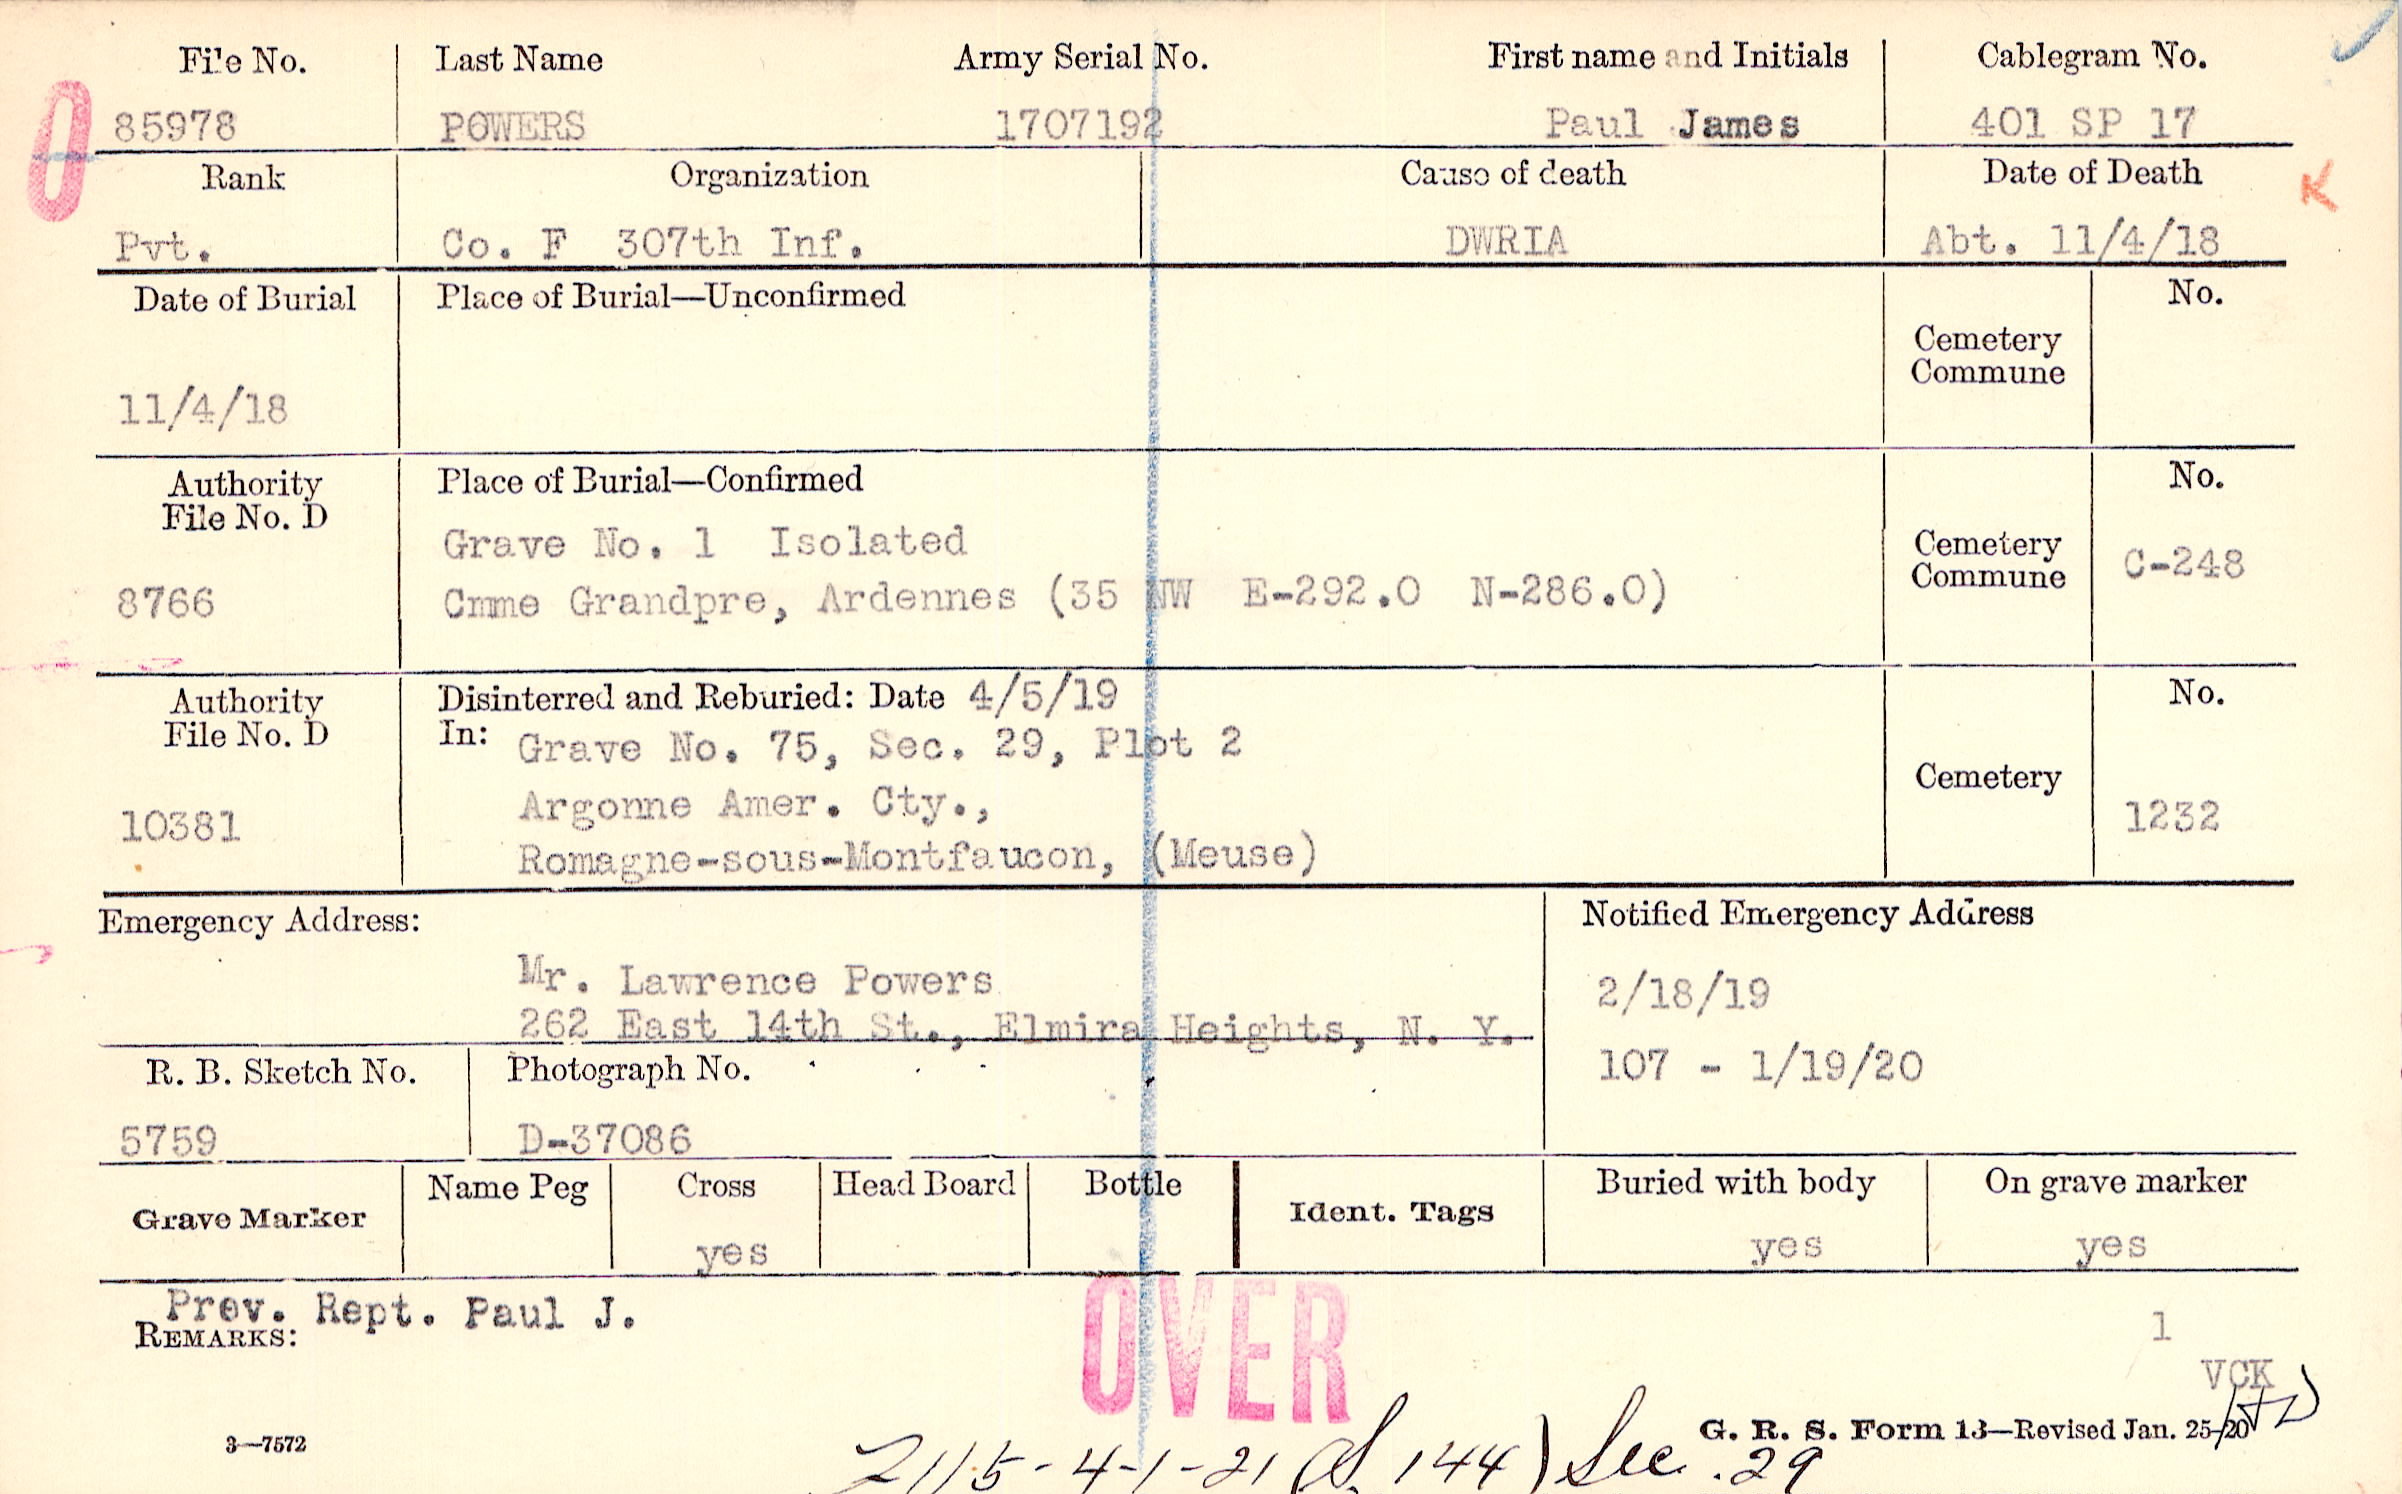 File No. Last Name Army Serial No. First name and Initials Cablegram No.
0 85978 POWERS 1707192 Paul James 401 SP 17
Rank Organization Cause of death Date of Death
K
Pvt. Co. F 307th Inf. DWRIA Abt. 11/4/18
Date of Burial Place of Burial—Unconfirmed No.
Cemetery
Commune
11/4/18
Authority Place of Burial—Confirmed No.
File No. D
Grave No. 1 Isolated Cemetery
Commune C-248
8766 Cmme Grandpre, Ardennes (35 NW E-292.0 N-286.0)
Authority Disinterred and Reburied: Date 4/5/19 No.
File No. D In: Grave No. 75, Sec. 29, Plot 2
Cemetery
10381 Argonne Amer. Cty., 1232
Romagne-sous-Montfaucon, (Meuse)
Emergency Address: Notified Emergency Address
Mr. Lawrence Powers 2/18/19
262 East 14th St., Elmira Heights, N. Y.
R. B. Sketch No. Photograph No. 107 - 1/19/20
5759 D-37086
Grave Marker Name Peg Cross Head Board Bottle Ident. Tags Buried with body On grave marker
yes yes yes
Prev. Rept. Paul J. 1
REMARKS: OVER
VCK
3—7572 G. R. S. Form 13—Revised Jan. 25-20
2115-4-1-21 (S. 144) Sec. 29